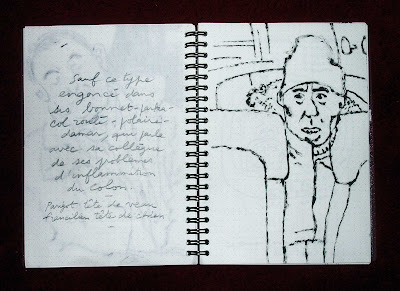 Sauf ce type
engoncé dans
ses bonnet-parka-
col roulé-polaire-
damar, qui parle
avec sa collègue
de ses problèmes
d'inflammation
du colon.
Parigot tête de veau
francilien tête de